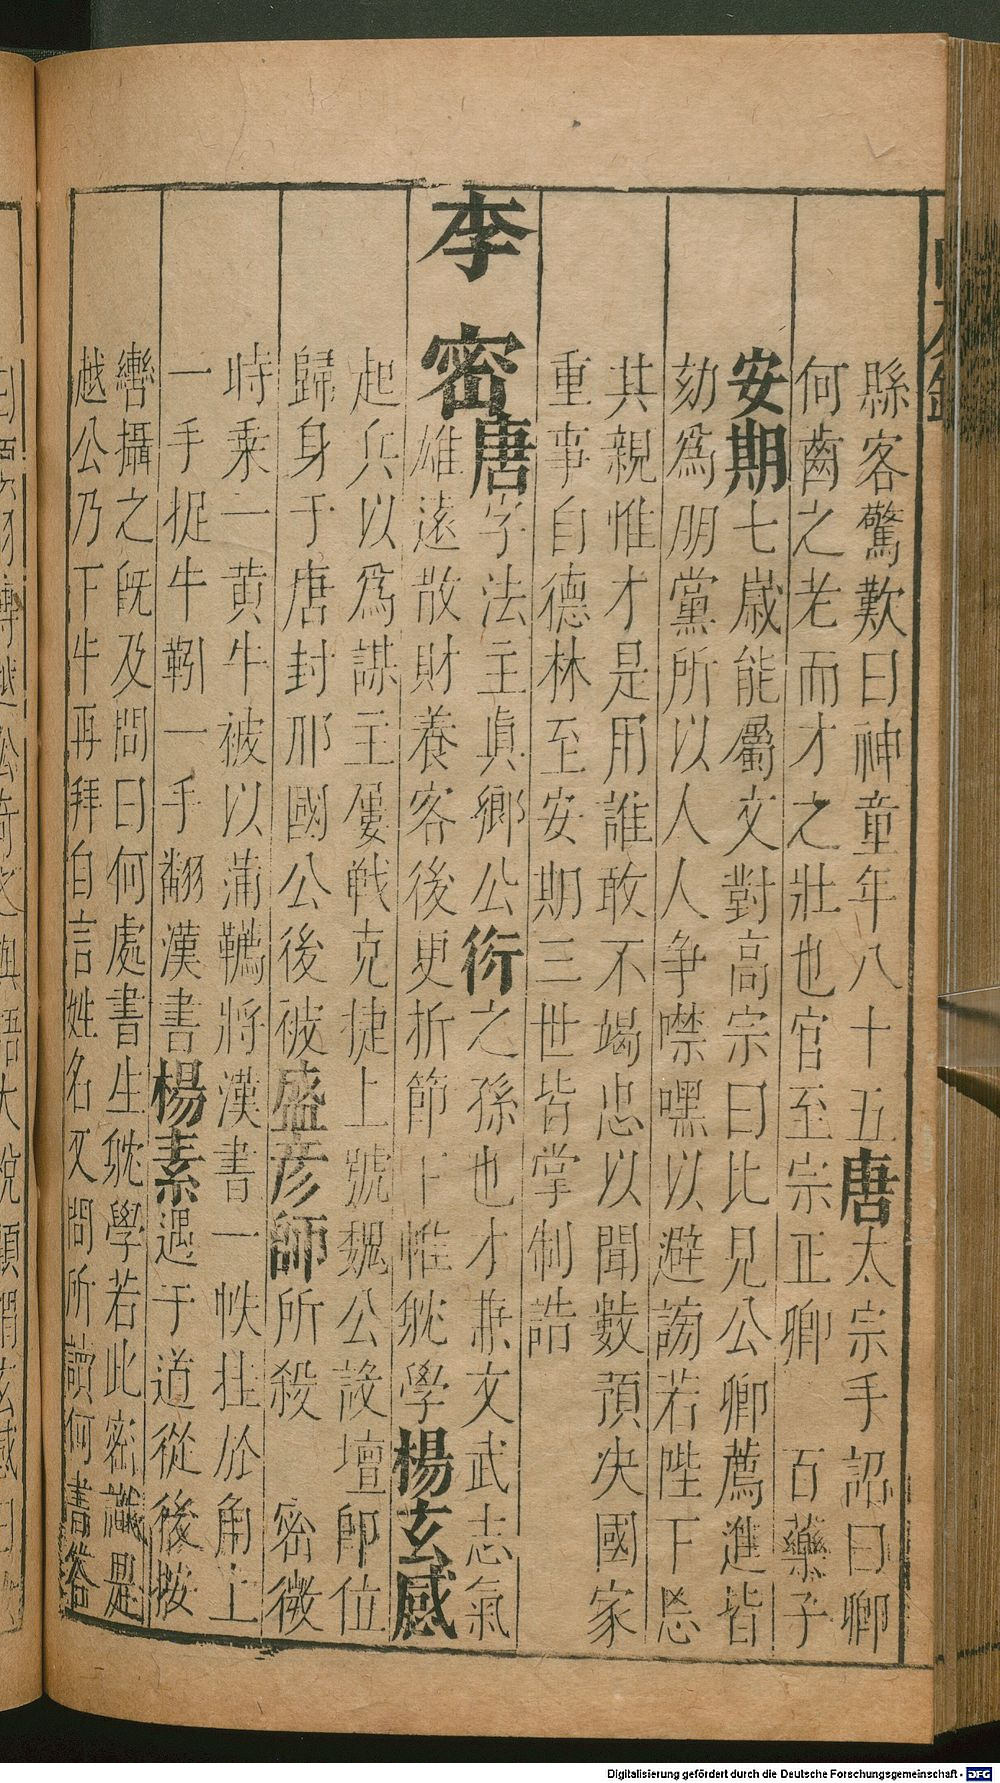 縣客驚歎曰神童年八十五唐太宗手詔曰卿
何齒之老而才之壯也官至宗正卿　百藥子
安期七歲能屬文對高宗曰比見公卿薦進皆
劾爲朋黨所以人人争噤嘿以避謗若陛下忘
其親惟才是用誰敢不竭忠以聞數預决國家
重事自德林至安期三世皆掌制誥
李密唐字法主眞鄉公衍之孫也才兼文武志氣
雄遠散財養客後更折節下帷躭學楊玄感
起兵以爲謀主屢戰克捷上號魏公設壇即位
歸身于唐封邢國公後被盛彦師所殺　密微
時乘一黄牛被以蒲韉將漢書一帙挂於角上
一手捉牛靷一手翻漢書楊素遇于道從後按
轡攝之既及問曰何處書生躭學若此密識是
越公乃下牛再拜自言姓名又問所讀何書答
Digitalisierung gefördert durch die Deutsche Forschungsgemeinschaft - DFG